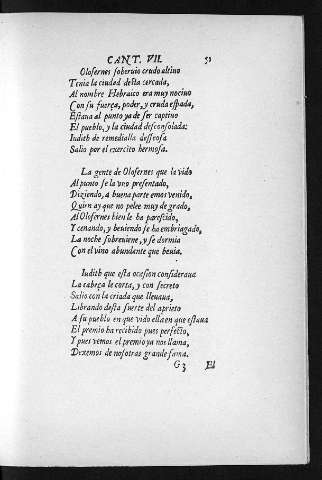 CANT. VII. 51
Olofernes soberuio crudo altiuo
Tenia la ciudad desta cercada,
Al nombre Hebraico era muy nociuo
Con su fuerça, poder, y cruda espada,
Estaua al punto ya de ser captiuo
El pueblo, y la ciudad desconsolada:
Iudith de remedialla desseosa
Salio por el exercito hermosa.
La gente de Olofernes que la vido
Al punto se la vuo presentado,
Diziendo, a buena parte emos venido,
Quien ay que no pelee muy de grado,
Al Olofernes bien le ha parescido,
Y cenando, y beuiendo se ha embriagado,
La noche sobreuiene, y se dormia
Con el vino abundante que beuia.
Iudith que esta ocasion consideraua
La cabeça le corta, y con secreto
Salio con la criada que lleuaua,
Librando desta suerte del aprieto
A su pueblo en que vido ella en que estaua
El premio ha recibido pues perfecto,
Y pues vemos el premio ya nos llama,
Dexemos de nosotras grande fama.
G 3 El